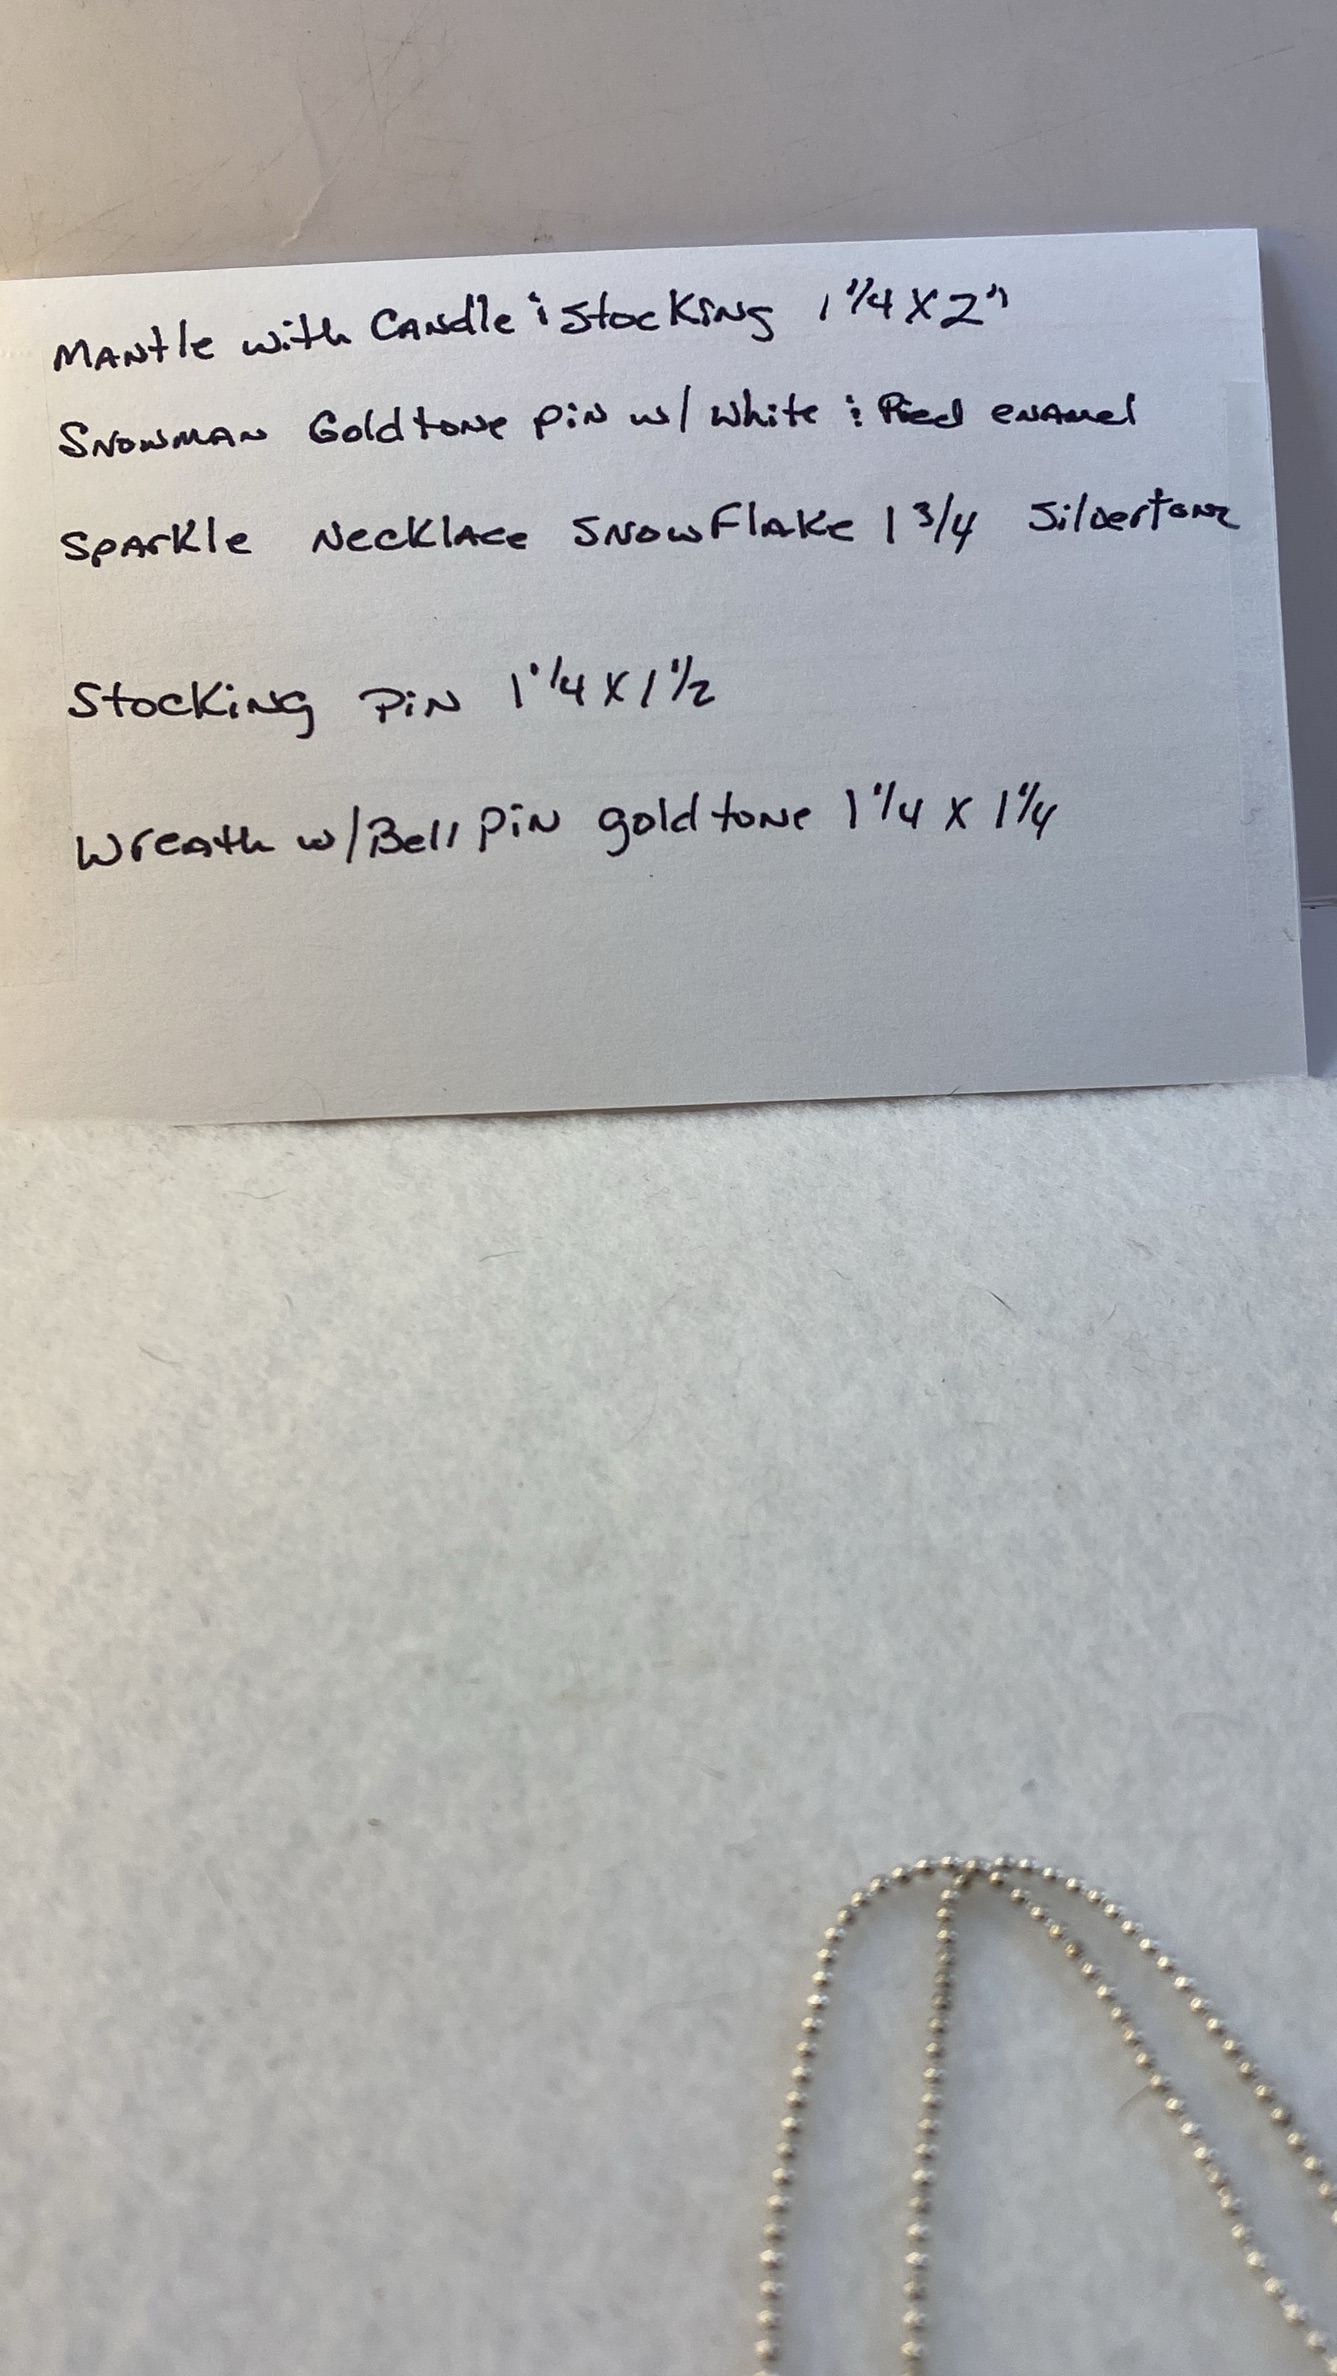 Mantle with Candle & Stocking 1 1/4 X 2"
Snowman Goldtone pin w/ white & Red enamel
Sparkle Necklace Snowflake 1 3/4 Silvertone
Stocking Pin 1 1/4 X 1 1/2
Wreath w/Bell Pin goldtone 1 1/4 X 1 1/4